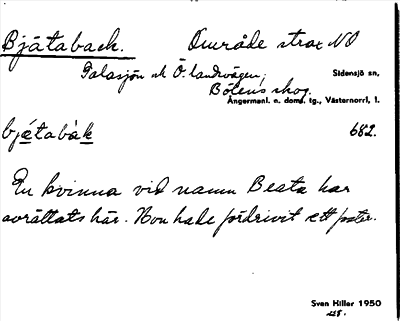 Bjätaback. Område strax NO
Galasjön ok Ö. landsvägen, Sidensjö sn,
Bölens skog.
Ångermanl. n. doms. tg., Västernorrl. l.
bjätabàk 682.
En kvinna vid namn Beata har
avrättats här. Hon hade fördrivit ett foster.
Sven Hiller 1950